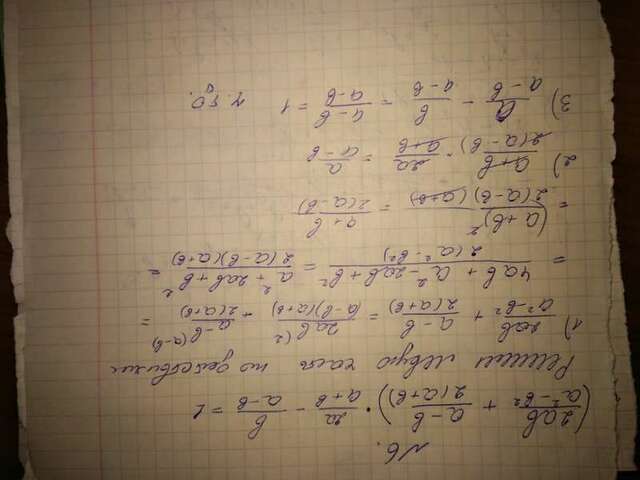 №6.
(2ab/(a²-b²) + (a-b)/(2(a+b))) · 2a/(a+b) - b/(a-b) = 1
Решим левую часть по действиям
1) 2ab/(a²-b²) + (a-b)/(2(a+b)) = 2ab (2/((a-b)(a+b)) + a-b (a-b/(2(a+b)) =
= (4ab + a² - 2ab + b²)/(2(a²-b²)) = (a² + 2ab + b²)/(2(a-b)(a+b)) =
= (a+b)²/(2(a-b)(a+b)) = (a+b)/(2(a-b))
2) (a+b)/(2(a-b)) · 2a/(a+b) = a/(a-b)
3) a/(a-b) - b/(a-b) = (a-b)/(a-b) = 1